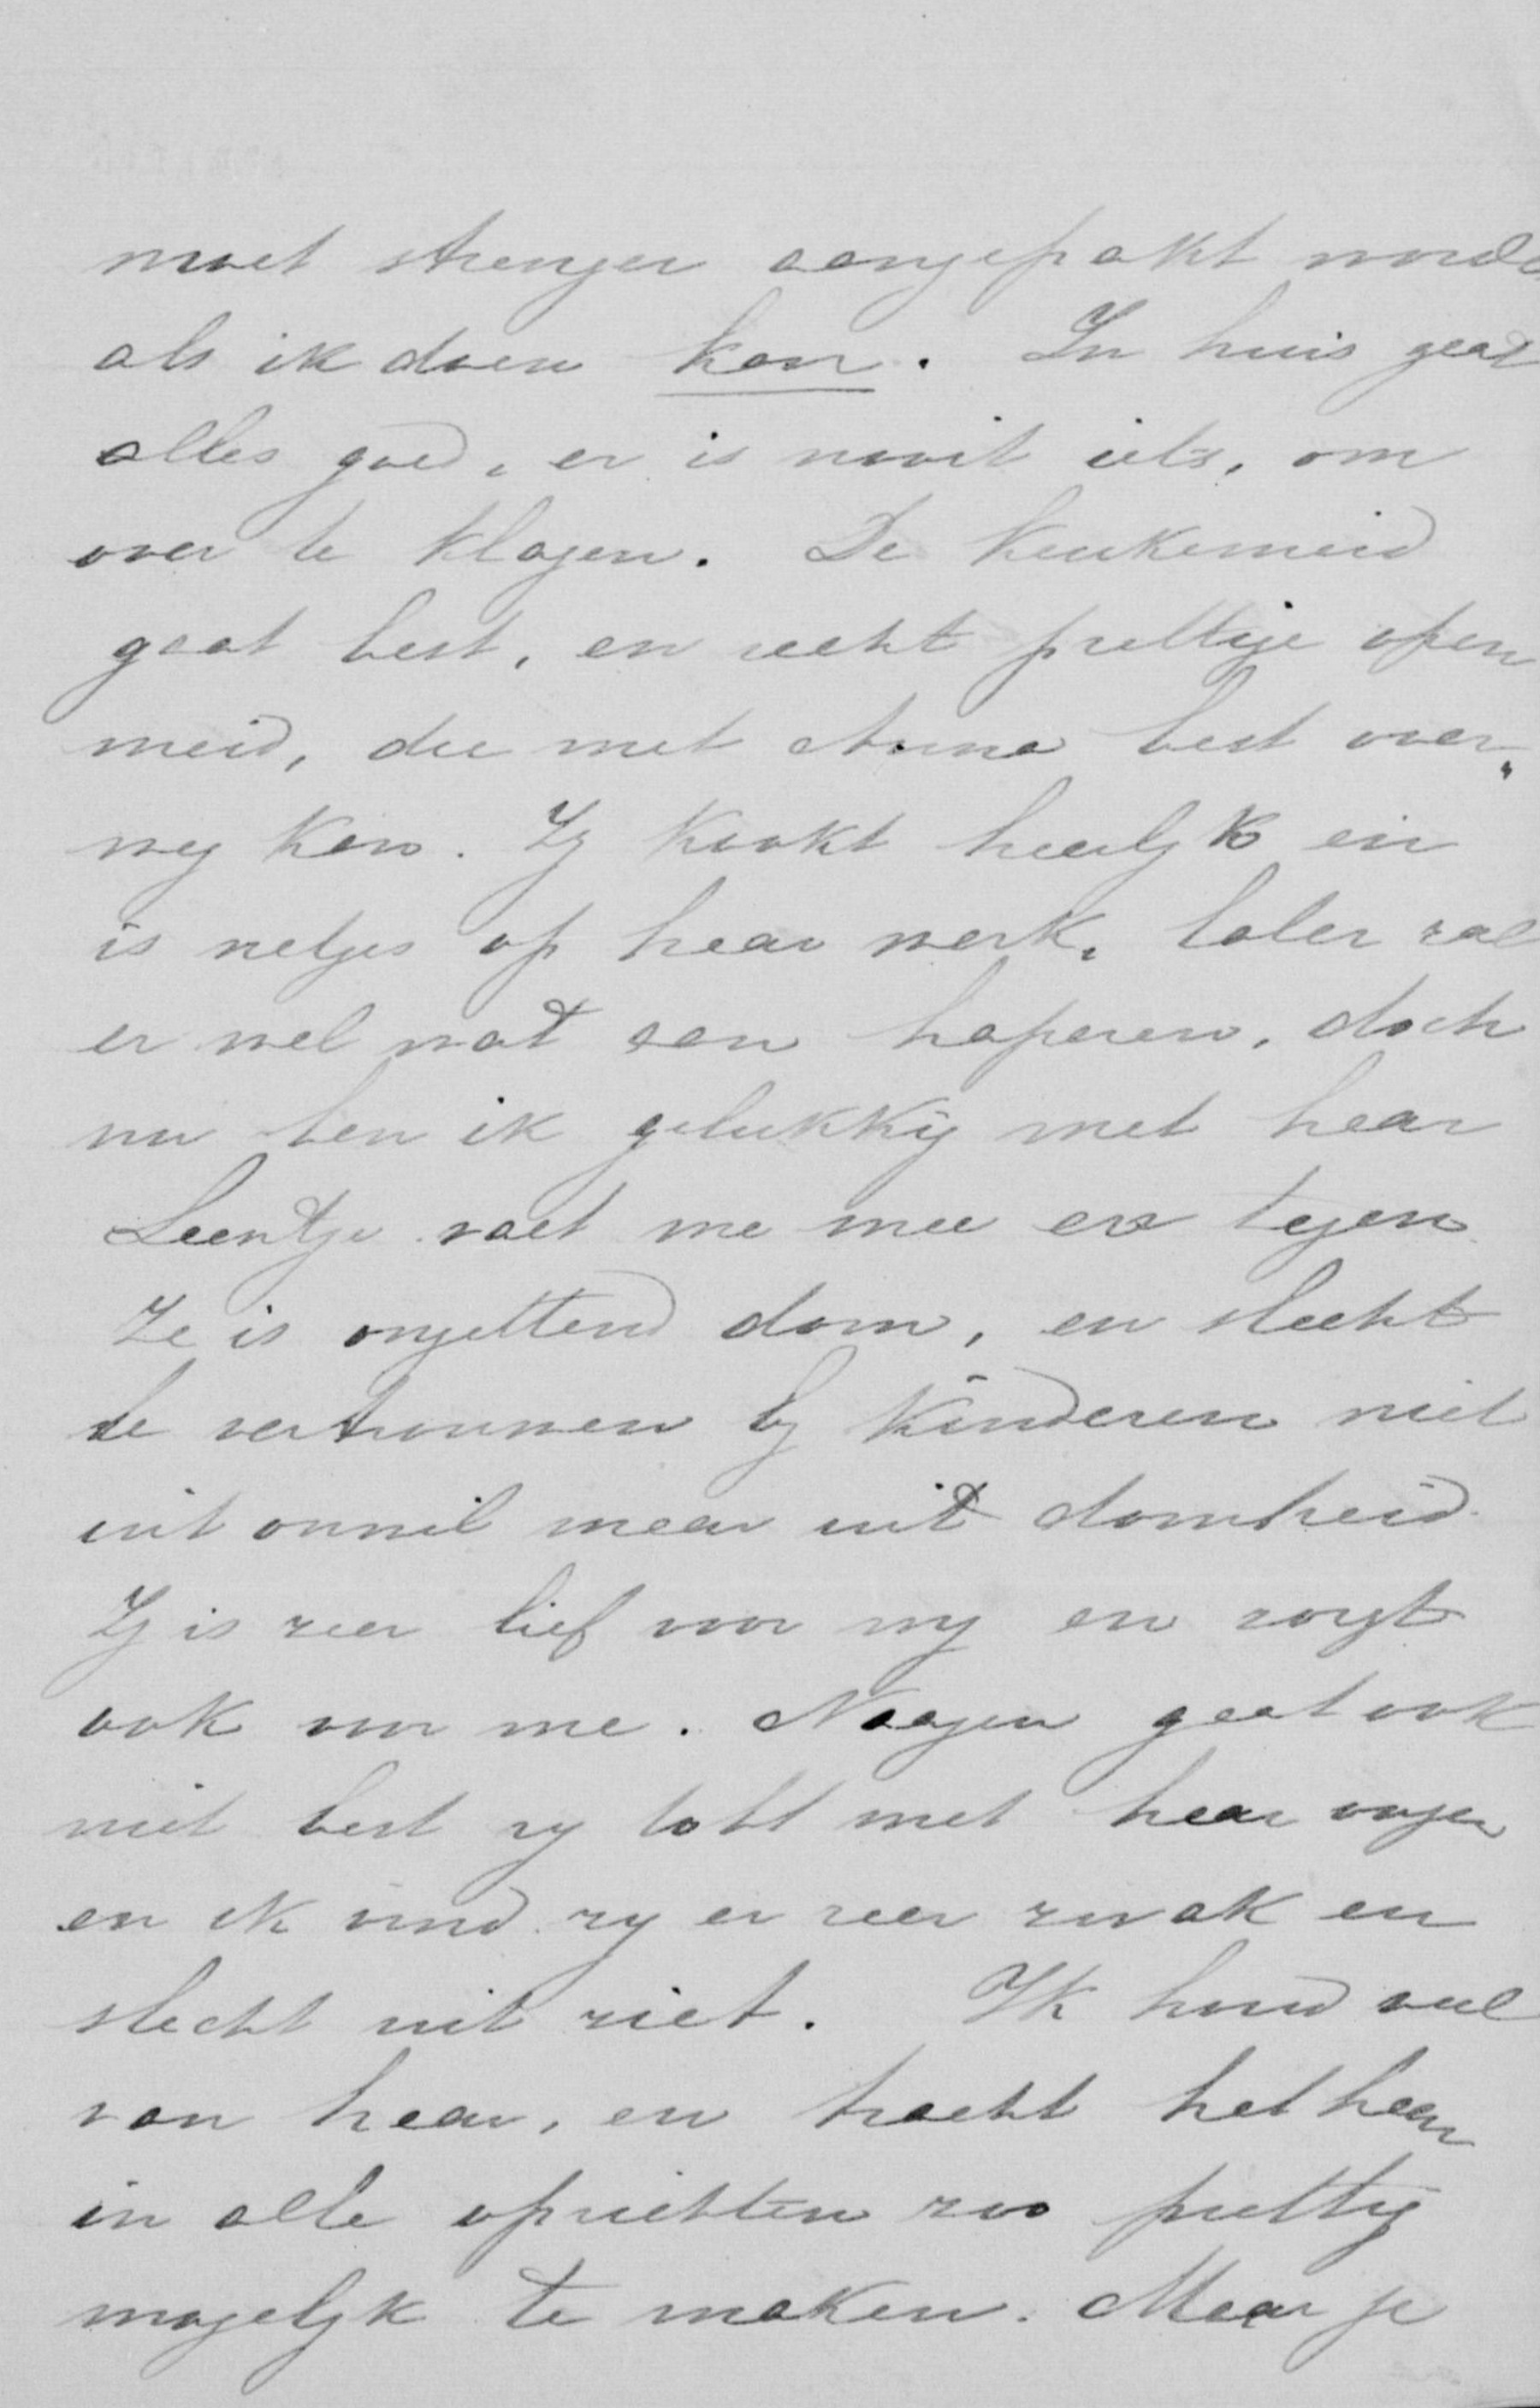 moet strenger aangepakt worde
als ik doen kan. In huis gaat
alles goed, er is nooit iets, om
over te klagen. De keukemeid
gaat best, en recht prettige open
meid, die met Anna best over„
weg kan. Zy kookt heerlyk en
is netjes op haar werk. Later zal
er wel wat aan haperen, doch
nu ben ik gelukkig met haar
Leentje valt me mee en tegen
Ze is ongettend dom, en slecht
te vertrouwen by kinderen niet
uit onwil maar uit domheid.
Zy is zeer lief voor my en zorgt
ook voor me. gaat ook
niet best zy tobt met haar oogen
en ik vind zy er zeer zwak en
slecht uit ziet. Ik houd veel
van haar, en tracht het haar
in alle opzichten zoo prettig
mogelyk te maken. Maar je